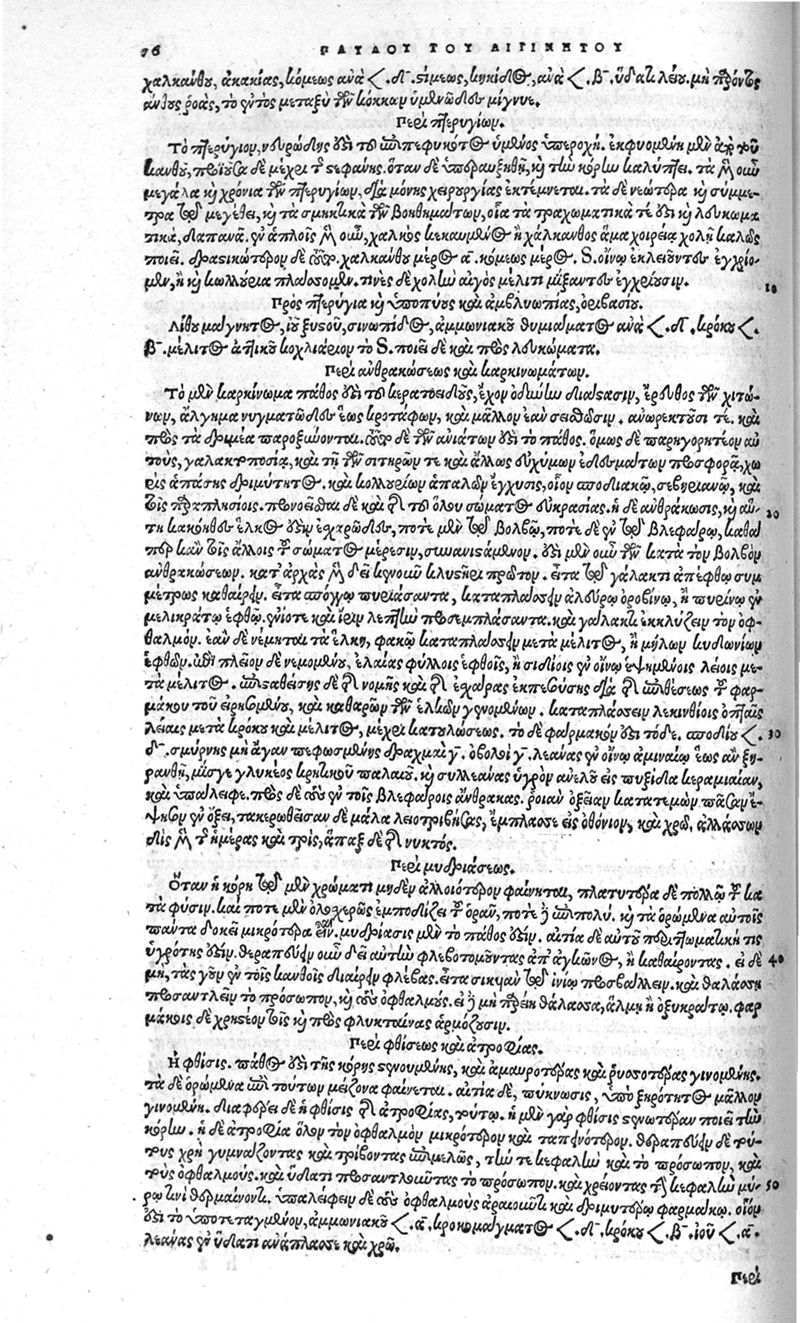 76 ΠΑΥΛΟΥ ΤΟΥ ΑΙΓΙΝΗΤΟΥ
χαλκάνθου, ἀκακίας, κόμεως ἀνὰ
ἄνθους ῥοᾶς, τὸ ἐντὸς μεταξὺ τῶν κόκκων ὑμενῶδες μίγνυε.
Περὶ πτερυγίων.
Τὸ πτερύγιον, νευρώδης ἐστὶ τοῦ ἐπιπεφυκότος ὑμένος ὑπεροχή. ἐκφυομένη μὲν ἀπὸ τοῦ
κανθοῦ, προϊοῦσα δὲ μέχρι τῆς στεφάνης. ὅταν δὲ ὑπεραυξηθῇ, καὶ τὴν κόρην καλύπτει. τὰ μὲν οὖν
μεγάλα καὶ χρόνια τῶν πτερυγίων, διὰ μόνης χειρουργίας ἐκτέμνεται. τὰ δὲ νεώτερα καὶ σύμμε-
τρα τῷ μεγέθει, καὶ τὰ σμηκτικὰ τῶν βοηθημάτων, οἷα τὰ τραχωματικὰ τέ ἐστι καὶ λευκωμα
τικά, δαπανᾶ. ἐν ἁπλοῖς μὲν οὖν, χαλκὸς κεκαυμένος ἢ χάλκανθος ἅμα χοιρείᾳ χολῇ καλῶς
ποιεῖ. δραστικώτερον δὲ χαλκάνθου μέρος α. κόμεως μέρος
μεν, ἢ καὶ κωλλούρια πλάσομεν. τινὲς δὲ χολὴν αἰγὸς μέλιτι μίξαντες ἐγχρίουσιν. 10
Πρὸς πτερύγια καὶ ὑποπύους καὶ ἀμβλυωπίας, ὀριβασίου.
Λίθου μαγνήτος, ἰοῦ ξυστοῦ, σινωπίδος, ἀμμωνιακοῦ θυμιάματος ἀνὰ
β. μέλιτος ἀττικοῦ κοχλιάριον τὸ ποιεῖ δὲ καὶ πρὸς λευκώματα.
Περὶ ἀνθρακώσεως καὶ καρκινωμάτων.
Τὸ μὲν καρκίνωμα πάθος ἐστὶ τοῦ κερατοειδοῦς, ἔχον ὀδύνην διάτασιν, ἔρευθος τῶν χιτώ-
νων, ἄλγημα νυγματῶδες ἕως κροτάφων, καὶ μᾶλλον ἐὰν σεισθῶσιν. ἀνορεκτοῦσί τε. καὶ
πρὸς τὰ δριμέα παροξύνονται. τῶν ἀνιάτων ἐστὶ τὸ πάθος. ὅμως δὲ παρηγορητέον αὐ
τοὺς, γαλακτοποσίᾳ, καὶ τῇ τῶν σιτηρῶν τε καὶ ἄλλως εὐχύμων ἐδεσμάτων προσφορᾷ, χω
ρὶς ἁπάσης δριμύτητος. καὶ κολλουρίων ἁπαλῶν ἐγχύσεις, οἷον σποδιακῷ, σεβηριανῷ, καὶ
τοῖς παραπλησίοις. προνοεῖσθαι δὲ καὶ τῆς τοῦ ὅλου σώματος εὐκρασίας. ἡ δὲ ἀνθράκωσις, καὶ αὐ- 20
τὴ κακόηθες ἕλκος ἐστὶν ἐσχαρῶδες, ποτὲ μὲν τῷ βολβῷ, ποτὲ δὲ ἐν τῷ βλεφάρῳ, καθά
περ κἀν τοῖς ἄλλοις τοῦ σώματος μέρεσιν, συνιστάμενον. ἐπὶ μὲν οὖν τῶν κατὰ τὸν βολβὸν
ἀνθρακώσεων. κατ' ἀρχὰς μὲν δεῖ κενοῦν κλυστῆρι πρῶτον. εἶτα τῷ γάλακτι ἀπέφθῳ συμ
μέτρως καθαίρειν. εἶτα σπόγγῳ πυριάσαντα, καταπλάσσειν ἀλεύρῳ ὀροβίνῳ, ἢ πυρίνῳ ἐν
μελικράτῳ ἑφθῷ.
θαλμόν. ἐὰν δὲ νέμηται τὰ ἕλκη, φακῷ καταπλάσσειν μετὰ μέλιτος, ἢ μήλων κυδωνίων
ἑφθῶν. ἐπὶ πλεῖον δὲ νεμομένου, ἐλαίας φύλλοις ἑφθοῖς, ἢ σιδίοις ἐν οἴνῳ ἑψημένοις λείοις με
τὰ μέλιτος. ἐπισταθείσης δὲ τῆς νομῆς καὶ τῆς ἐσχάρας ἐκπεσούσης διὰ τῆς ἐπιθέσεως τοῦ φαρ-
μάκου τοῦ εἰρημένου, καὶ καθαρῶν τῶν ἑλκῶν γενομένων. καταπλάσσειν λεκίνθοις ὀπταῖς
λείαις μετὰ κρόκου καὶ μέλιτος, μέχρι κατουλώσεως. τὸ δὲ φάρμακόν ἐστι τόδε. σποδίου 30
δ. σμύρνης μὴ ἄγαν πεφωσμένης δραχμαὶ γ. ὀβολοὶ γ. λεάνας ἐν οἴνῳ ἀμιναίῳ ἕως ἂν ξη-
ρανθῇ, μίσγε γλυκέος κρητικοῦ παλαιοῦ. καὶ συλλεάνας ὑγρὸν ἀνελοῦ εἰς πυξίδα κεραμιαίαν,
καὶ ὑπάλειφε. πρὸς δὲ τοὺς ἐν τοῖς βλεφάροις ἄνθρακας. ῥοιὰν ὀξεῖαν κατατεμὼν πᾶσαν ἕ-
ψησον ἐν ὄξει, τακερωθεῖσαν δὲ μάλα λειοτριβήσας, ἔμπλασσε εἰς ὀθόνιον, καὶ χρῶ. ἀλλάσσων
δὶς μὲν τῆς ἡμέρας καὶ τρὶς, ἅπαξ δὲ τῆς νυκτός.
Περὶ μυδριάσεως.
Ὅταν ἡ κόρη τῷ μὲν χρώματι μηδὲν ἀλλοιότερον φαίνηται, πλατυτέρα δὲ πολλῷ τοῦ κα
τὰ φύσιν. καί ποτε μὲν ὁλοσχερῶς ἐμποδίζει τοῦ ὁρᾶν, ποτὲ δὲ ἐπὶ πολύ. καὶ τὰ ὁρώμενα αὐτοῖς
πάντα δοκεῖ μικρότερα εἶναι. μυδρίασις μὲν τὸ πάθος ἐστίν. αἰτία δὲ αὐτοῦ περιττωματική τις
ὑγρότης ἐστίν. θεραπεύειν οὖν δεῖ αὐτὴν φλεβοτομοῦντας ἀπ' ἀγκῶνος, ἢ καθαίροντας. εἰ δὲ 40
μὴ, τὰς γοῦν ἐν τοῖς κανθοῖς διαιρεῖν φλέβας. εἶτα σικύαν τῷ ἰνίῳ προσβάλλειν. καὶ θαλάσσῃ
προσαντλεῖν τὸ πρόσωπον, καὶ τοὺς ὀφθαλμούς. εἰ δὲ μὴ παρείη θάλασσα, ἅλμῃ ἢ ὀξυκράτῳ. φαρ
μάκοις δὲ χρηστέον τοῖς καὶ πρὸς φλυκταίνας ἁρμόζουσιν.
Περὶ φθίσεως καὶ ἀτροφίας.
Ἡ φθίσις. πάθος ἐστὶ τῆς κόρης στενουμένης, καὶ ἀμαυροτέρας καὶ ῥυσοτέρας γινομένης.
τὰ δὲ ὁρώμενα ἐπὶ τούτων μείζονα φαίνεται. αἰτία δὲ, πύκνωσις, ὑπὸ ξηρότητος μᾶλλον
γινομένη. διαφέρει δὲ ἡ φθίσις τῆς ἀτροφίας, τούτῳ. ἡ μὲν γὰρ φθίσις στενωτέραν ποιεῖ τὴν
κόρην. ἡ δὲ ἀτροφία ὅλον τὸν ὀφθαλμὸν μικρότερον καὶ ταπεινότερον. θεραπεύειν δὲ τού-
τους χρὴ γυμνάζοντας καὶ τρίβοντας ἐπιμελῶς, τήν τε κεφαλὴν καὶ τὸ πρόσωπον, καὶ
τοὺς ὀφθαλμούς. καὶ ὕδατι προσαντλοῦντας τὸ πρόσωπον. καὶ χρίοντας τὴν κεφαλὴν μύ- 50
ρῳ τινὶ θερμαίνοντι. ὑπαλείφειν δὲ τοὺς ὀφθαλμοὺς ἀραιοῦντι καὶ δριμυτέρῳ φαρμάκῳ. οἷόν
ἐστι τὸ ὑποτεταγμένον, ἀμμωνιακοῦ α. κροκομάγματος κρόκου β. ἰοῦ α.
λεάνας ἐν ὕδατι ἀνάπλασσε καὶ χρῶ.
Περὶ